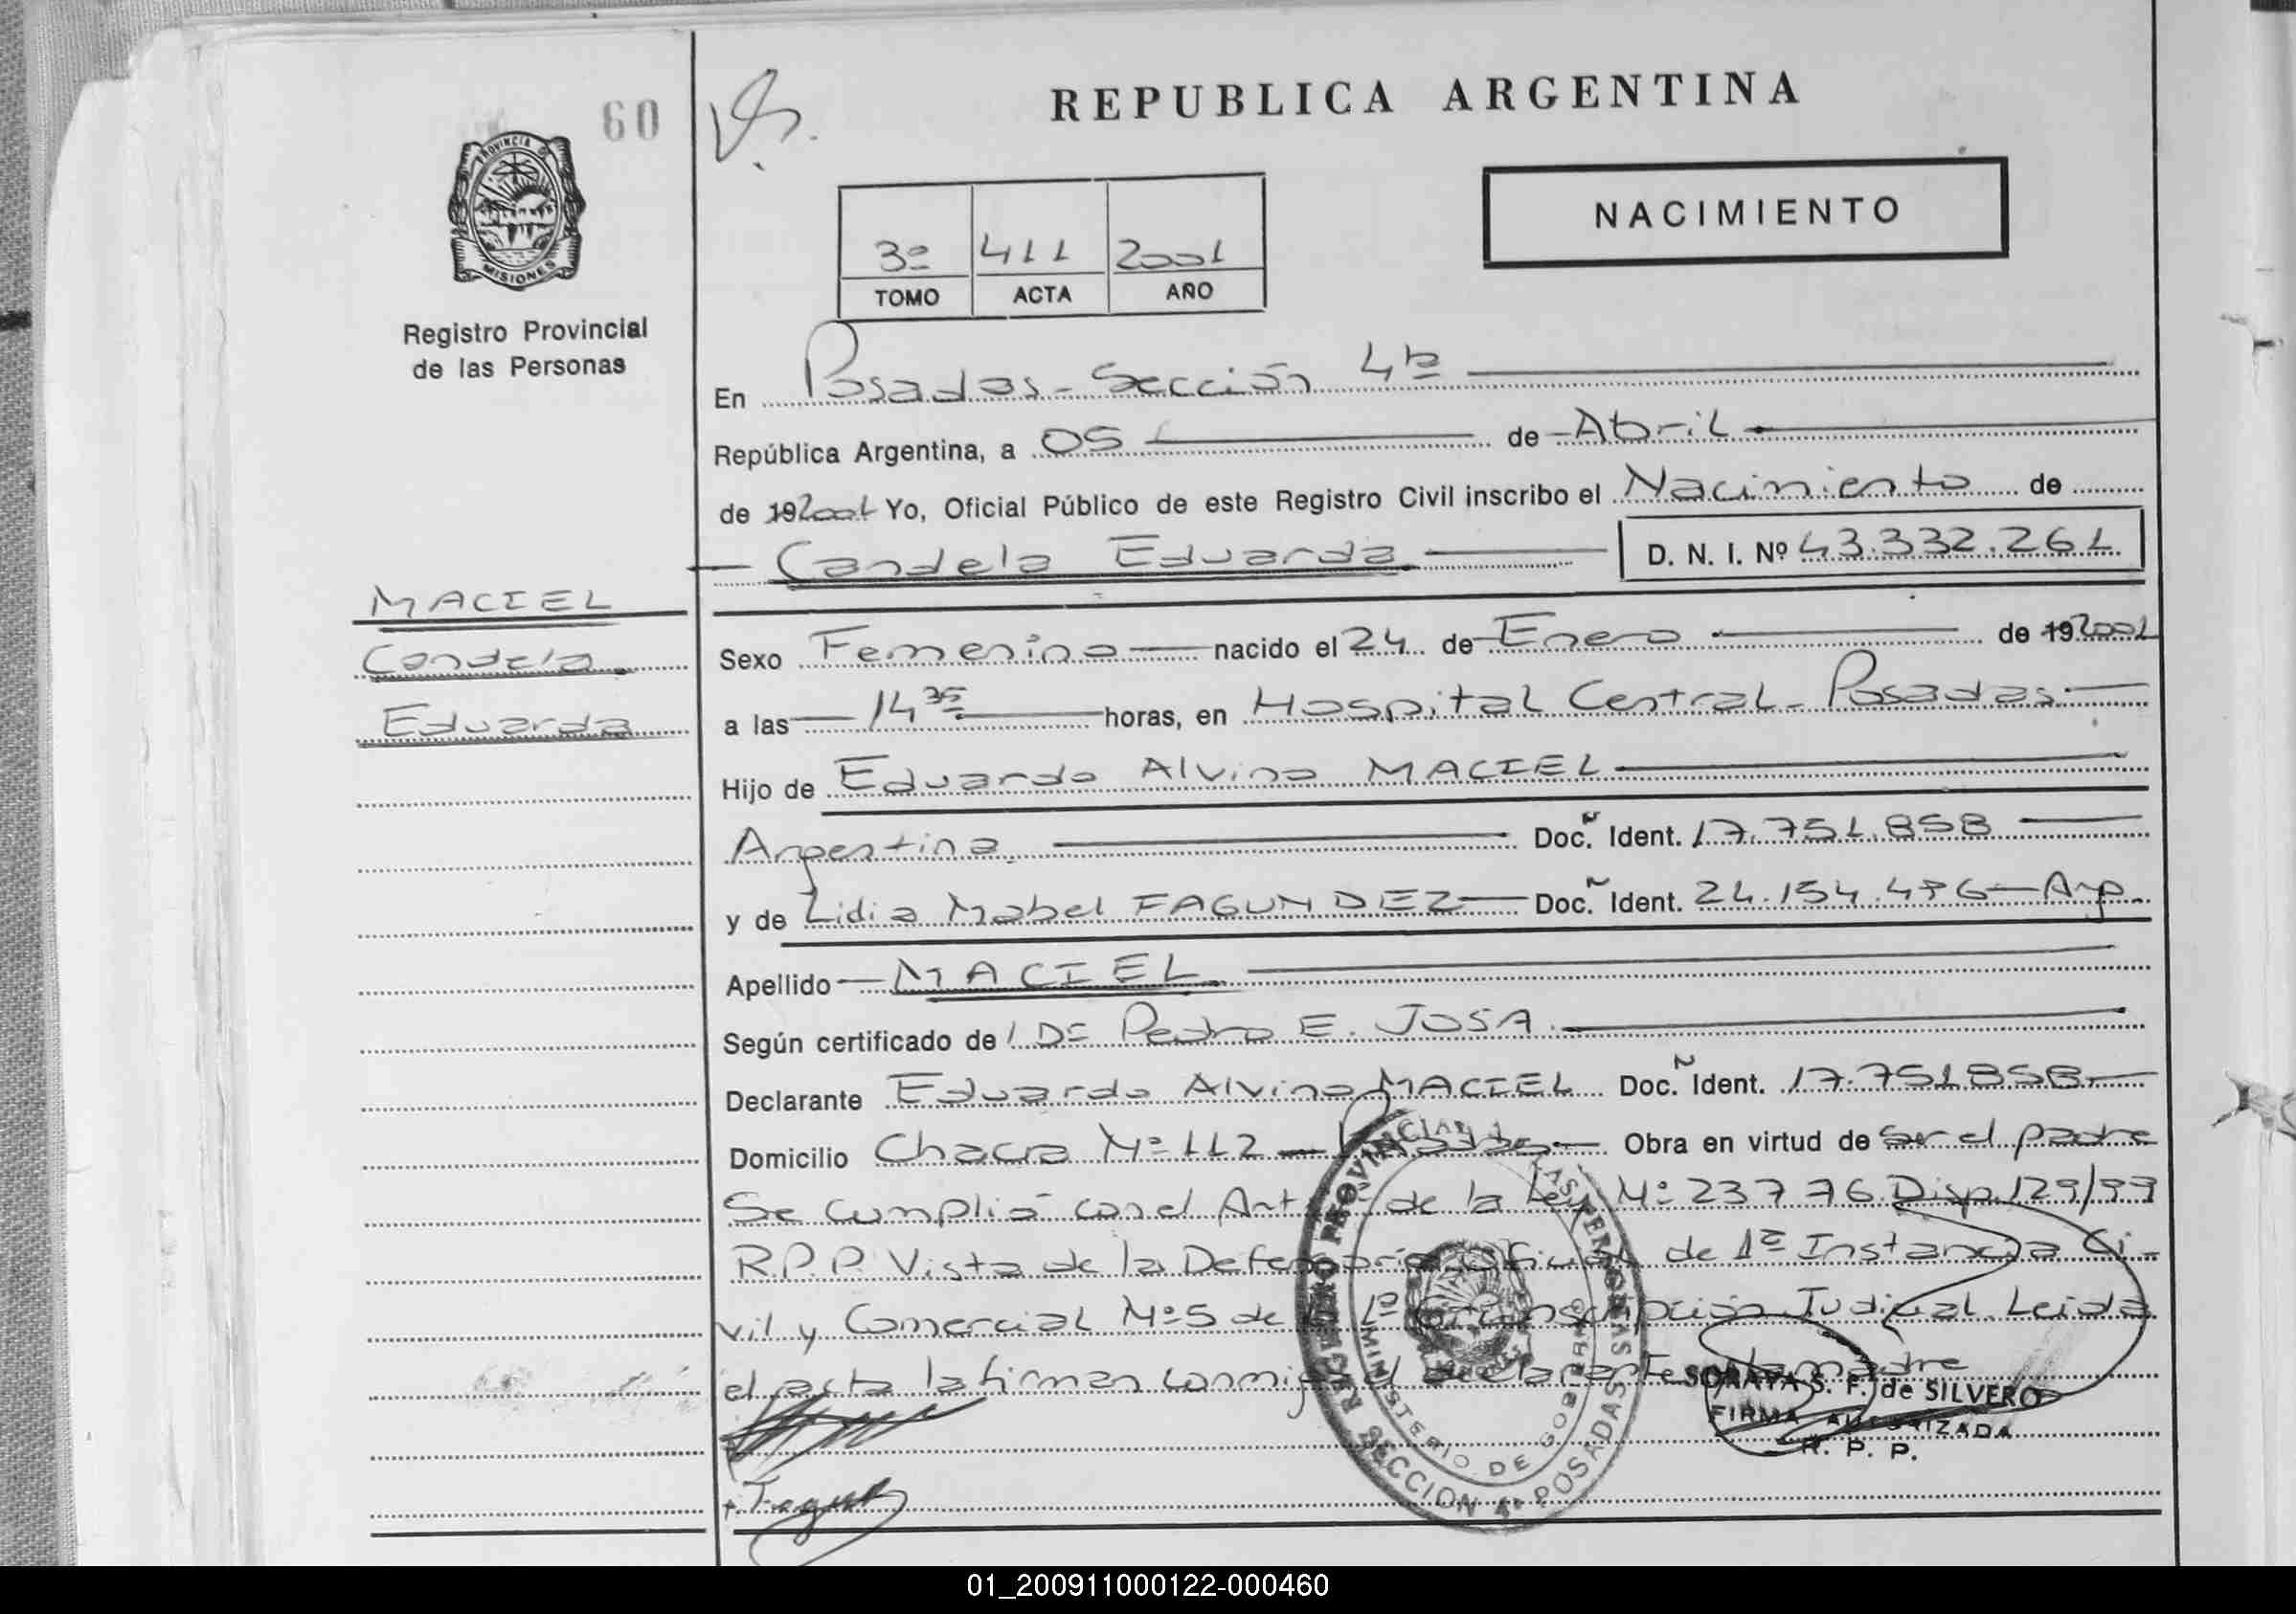 60
REPUBLICA ARGENTINA
PROVINCIA DE
MISIONES
Registro Provincial
de las Personas
NACIMIENTO
3º 411 2001
TOMO ACTA AÑO
En Posadas - Sección 4ta
República Argentina, a 05 de Abril
de 192001 Yo, Oficial Público de este Registro Civil inscribo el Nacimiento de
Candela Eduarda D. N. I. Nº 43.332.261
MACIEL
Candela
Eduarda
Sexo Femenino nacido el 24 de Enero de 192001
a las 14 35 horas, en Hospital Central - Posadas
Hijo de Eduardo Alvino MACIEL
Argentina Doc. Ident. 17.751.858
y de Lidia Mabel FAGUNDEZ Doc. Ident. 24.154.496 - Arg.
Apellido MACIEL
Según certificado de Dr Pedro E. JOSA
Declarante Eduardo Alvino MACIEL Doc. Ident. 17.751858
Domicilio Chacra Nº 112 - Posadas Obra en virtud de ser el padre
Se cumplió con el Art de la Ley Nº 23776 Disp. 129/99
R.P.P. Vista de la Defensoría Oficial de 1ª Instancia Ci-
vil y Comercial Nº 5 de la 1ª Circunscripción Judicial. Leída
el acta la firman conmigo el declarante y la madre
SORAYA S. F. de SILVERO
FIRMA AUTORIZADA
R. P. P.
REGISTRO PROVINCIAL DE LAS PERSONAS
MINISTERIO DE GOBIERNO
SECCION 4ª POSADAS MISIONES
01_200911000122-000460